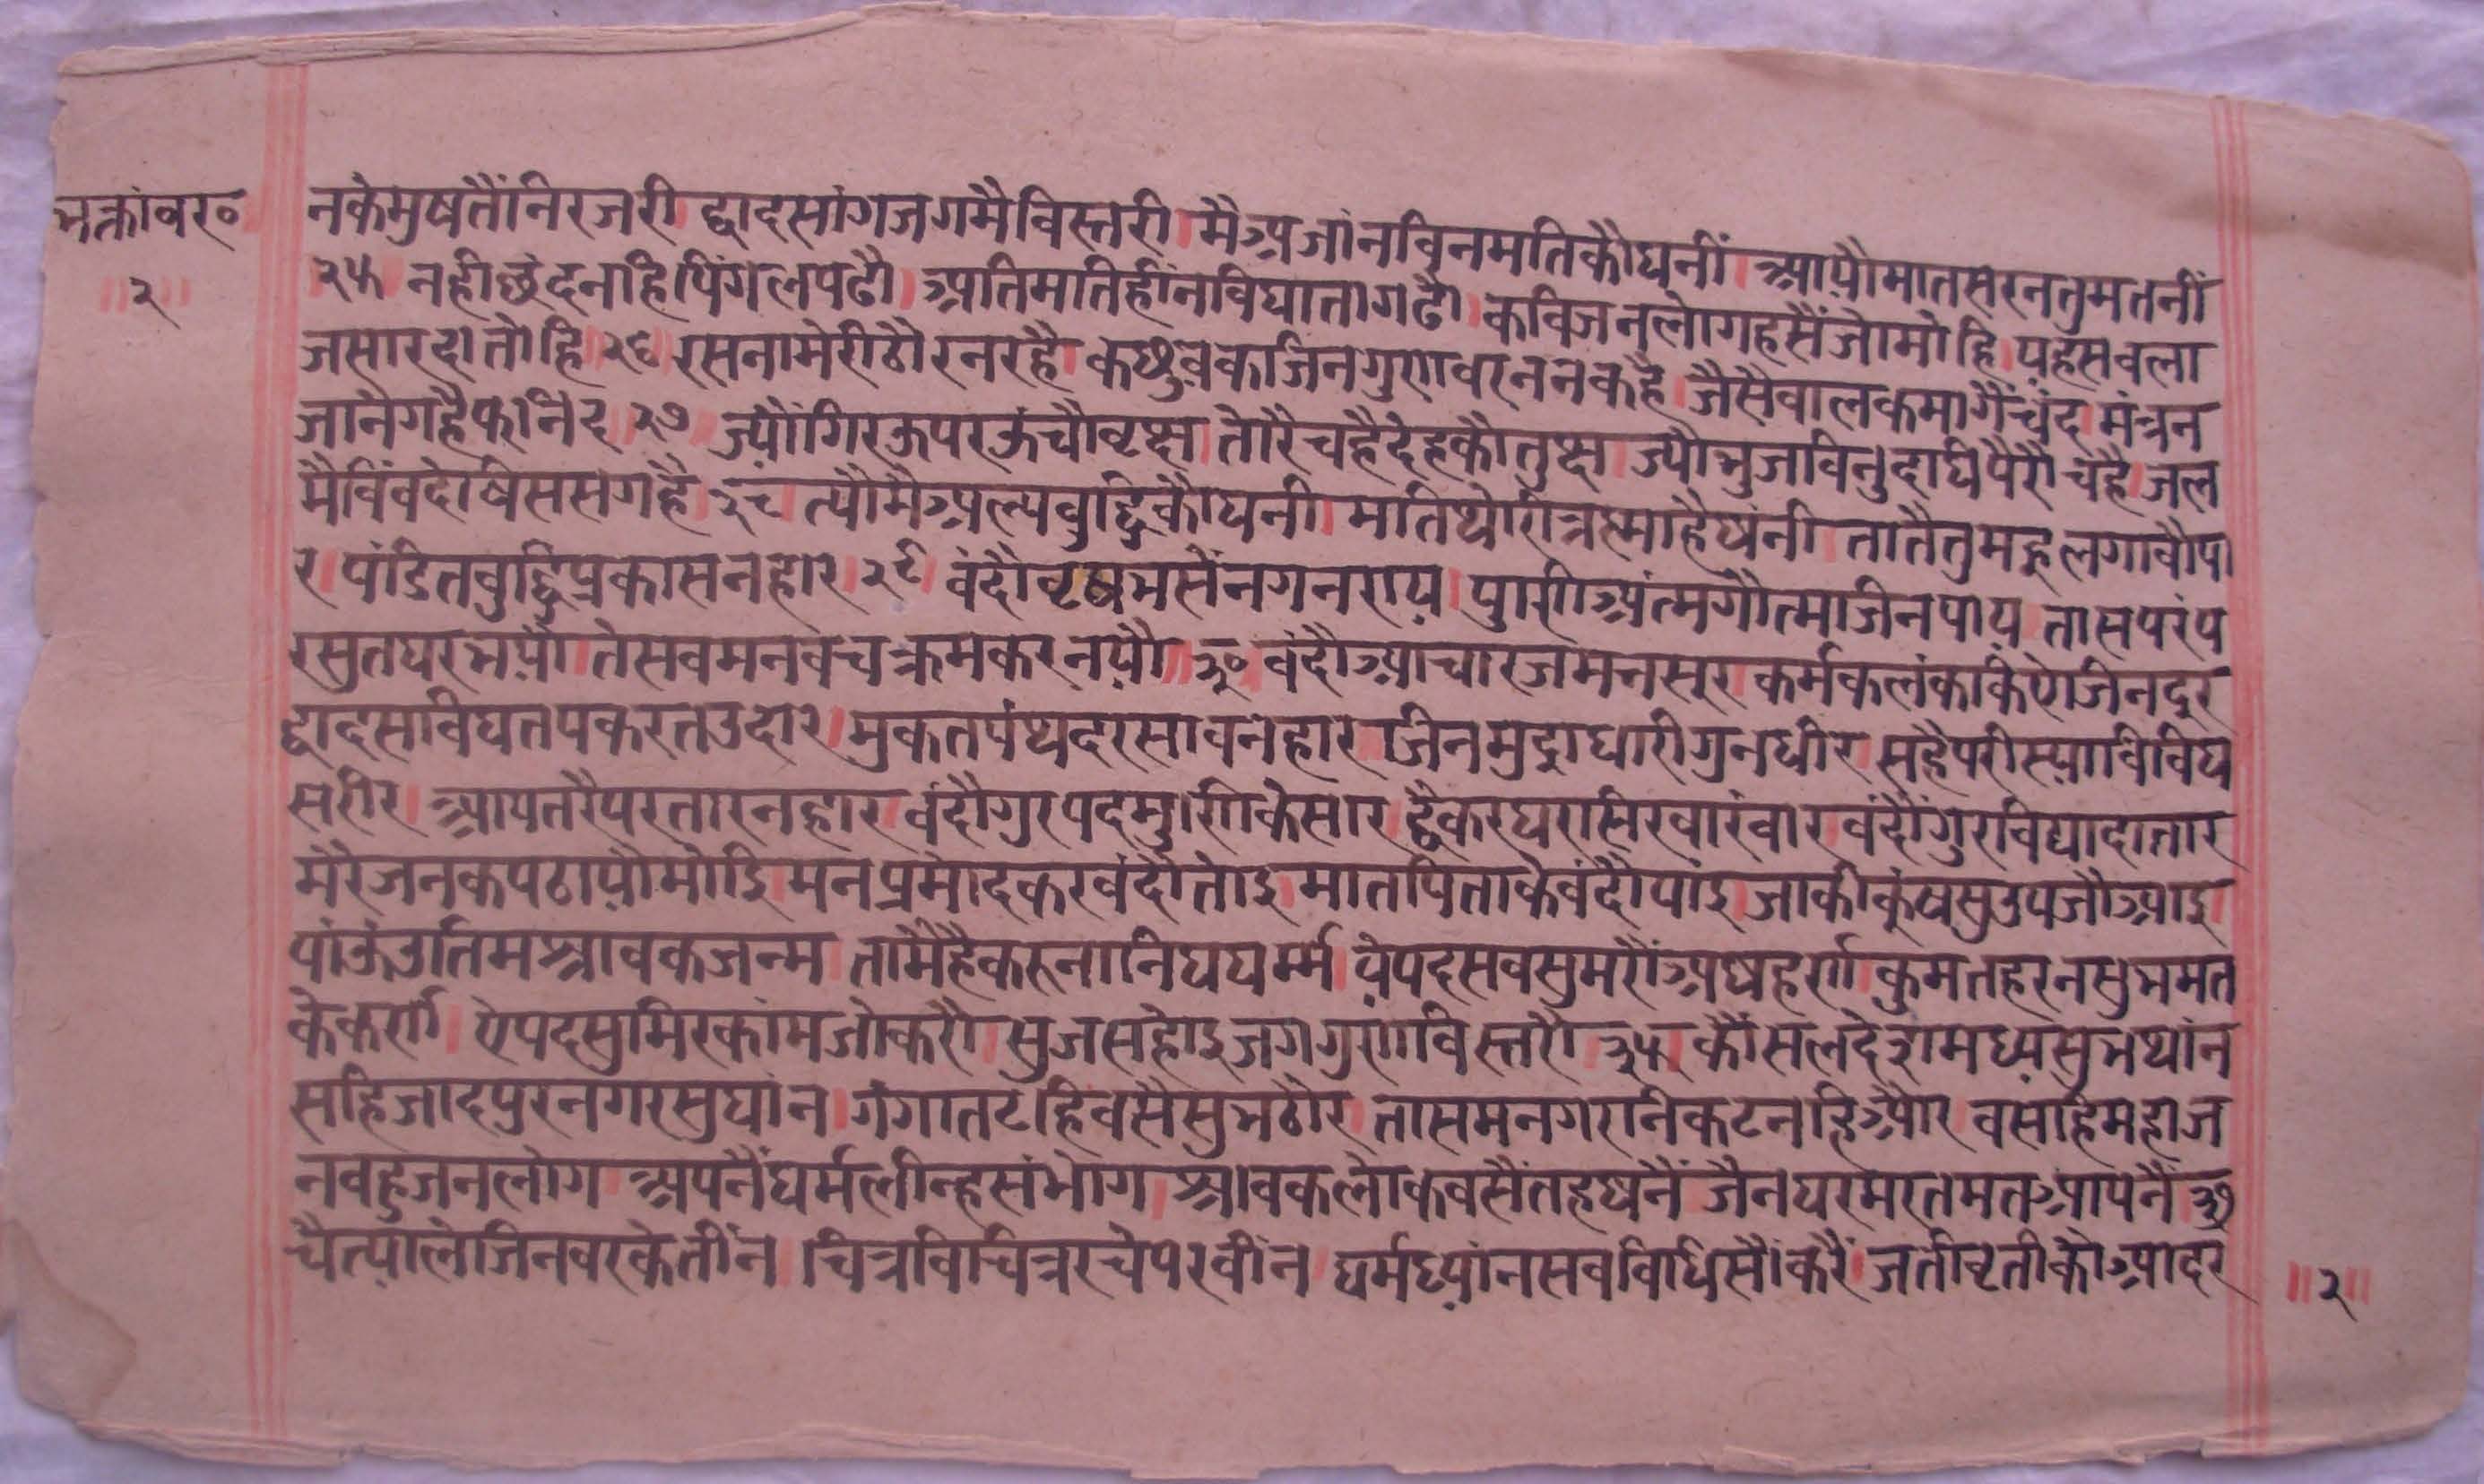 भक्तांवर०
॥२॥
नकेमुषतैंनिरजरी।द्वादसांगजगमैविस्तरी।मैअजांनविनमतिकौधनीं।आयौमातसरनतुमतनीं
२५ नहीछंदनाहिपिंगलपढौ।अतिमतिहींनविधातागढौ।कविजनलोगहसैंजोमोहि।यहसवला
जसारदातोहि।२६।रसनामेरीठौरनरहै।कछुवकजिनगुणवरननकहै।जैसैवालकमागैंचंद।मंत्रन
जानैगहैफनिंद।२७।ज्यौंगिरऊपरऊंचौवृष्ष।तोरैचहैदेहकौतुष्ष।ज्यौभुजाविनुदधिपैरौचहै।जल
मैविंवदेषिससिगहै।२८।त्यौमैअल्पवुद्धिकौधनी।मतिथोरीत्रस्माहैघनी।तातैतुमहूलगावौपा
र।पंडितवुद्धिप्रकासनहार।२९।वंदौवृषभसेंनगनराय।पुणिअंत्मगौत्माजिनपाय।तासपरंप
रसुतधरभयौ।तेसवमनवचक्रमकरनयौ।३०।वंदौआचारजमनसूर।कर्मकलंककिएजिनदूर
द्वादसविधतपकरतउदार।मुकतपंथदरसावनहार।जिनमुद्राधारीगुनधीर।सहैपरीस्याविविध
सरीर।आपतरैपरतारनहार।वंदौगुरपदमुणिकेसार।द्वैकरधरासिरवारंवार।वंदौंगुरविद्यादातार
मेरेजनकपठायौमोइि।मनप्रमोदकरवंदौतोइ।मातपिताकेवंदौपांइ।जाकीकूंषसुउपजौआइ
पांऊंउतिमश्रावकजन्म।तामैहैकरुनानिधधर्म्म।येपदसवसुमरौंअघहर्ण।कुमतहरनसुभमत
केकर्ण।एपदसुमिरकांमजोकरौ।सुजसहोइजगगुणविस्तरौ।३५।कौंसलदेशमध्यसुभथांन
सहिजादपुरनगरसुधांन।गंगातटहिवसैसुभठौर।तासमनगरनिकटनहिऔर।वसहिमहाज
नवहुजनलोग।अपनैंधर्मलीन्हसंभोग।श्रावकलोकवसैंतहघनैं।जैनधरमरतमतआपनैं३७
चैत्यालेजिनवरकेतींन।चित्रविचित्ररचेपरवींन।धर्मध्यांनसवविधिसौंकरैं।जतीवृतीकौआदर
॥२॥